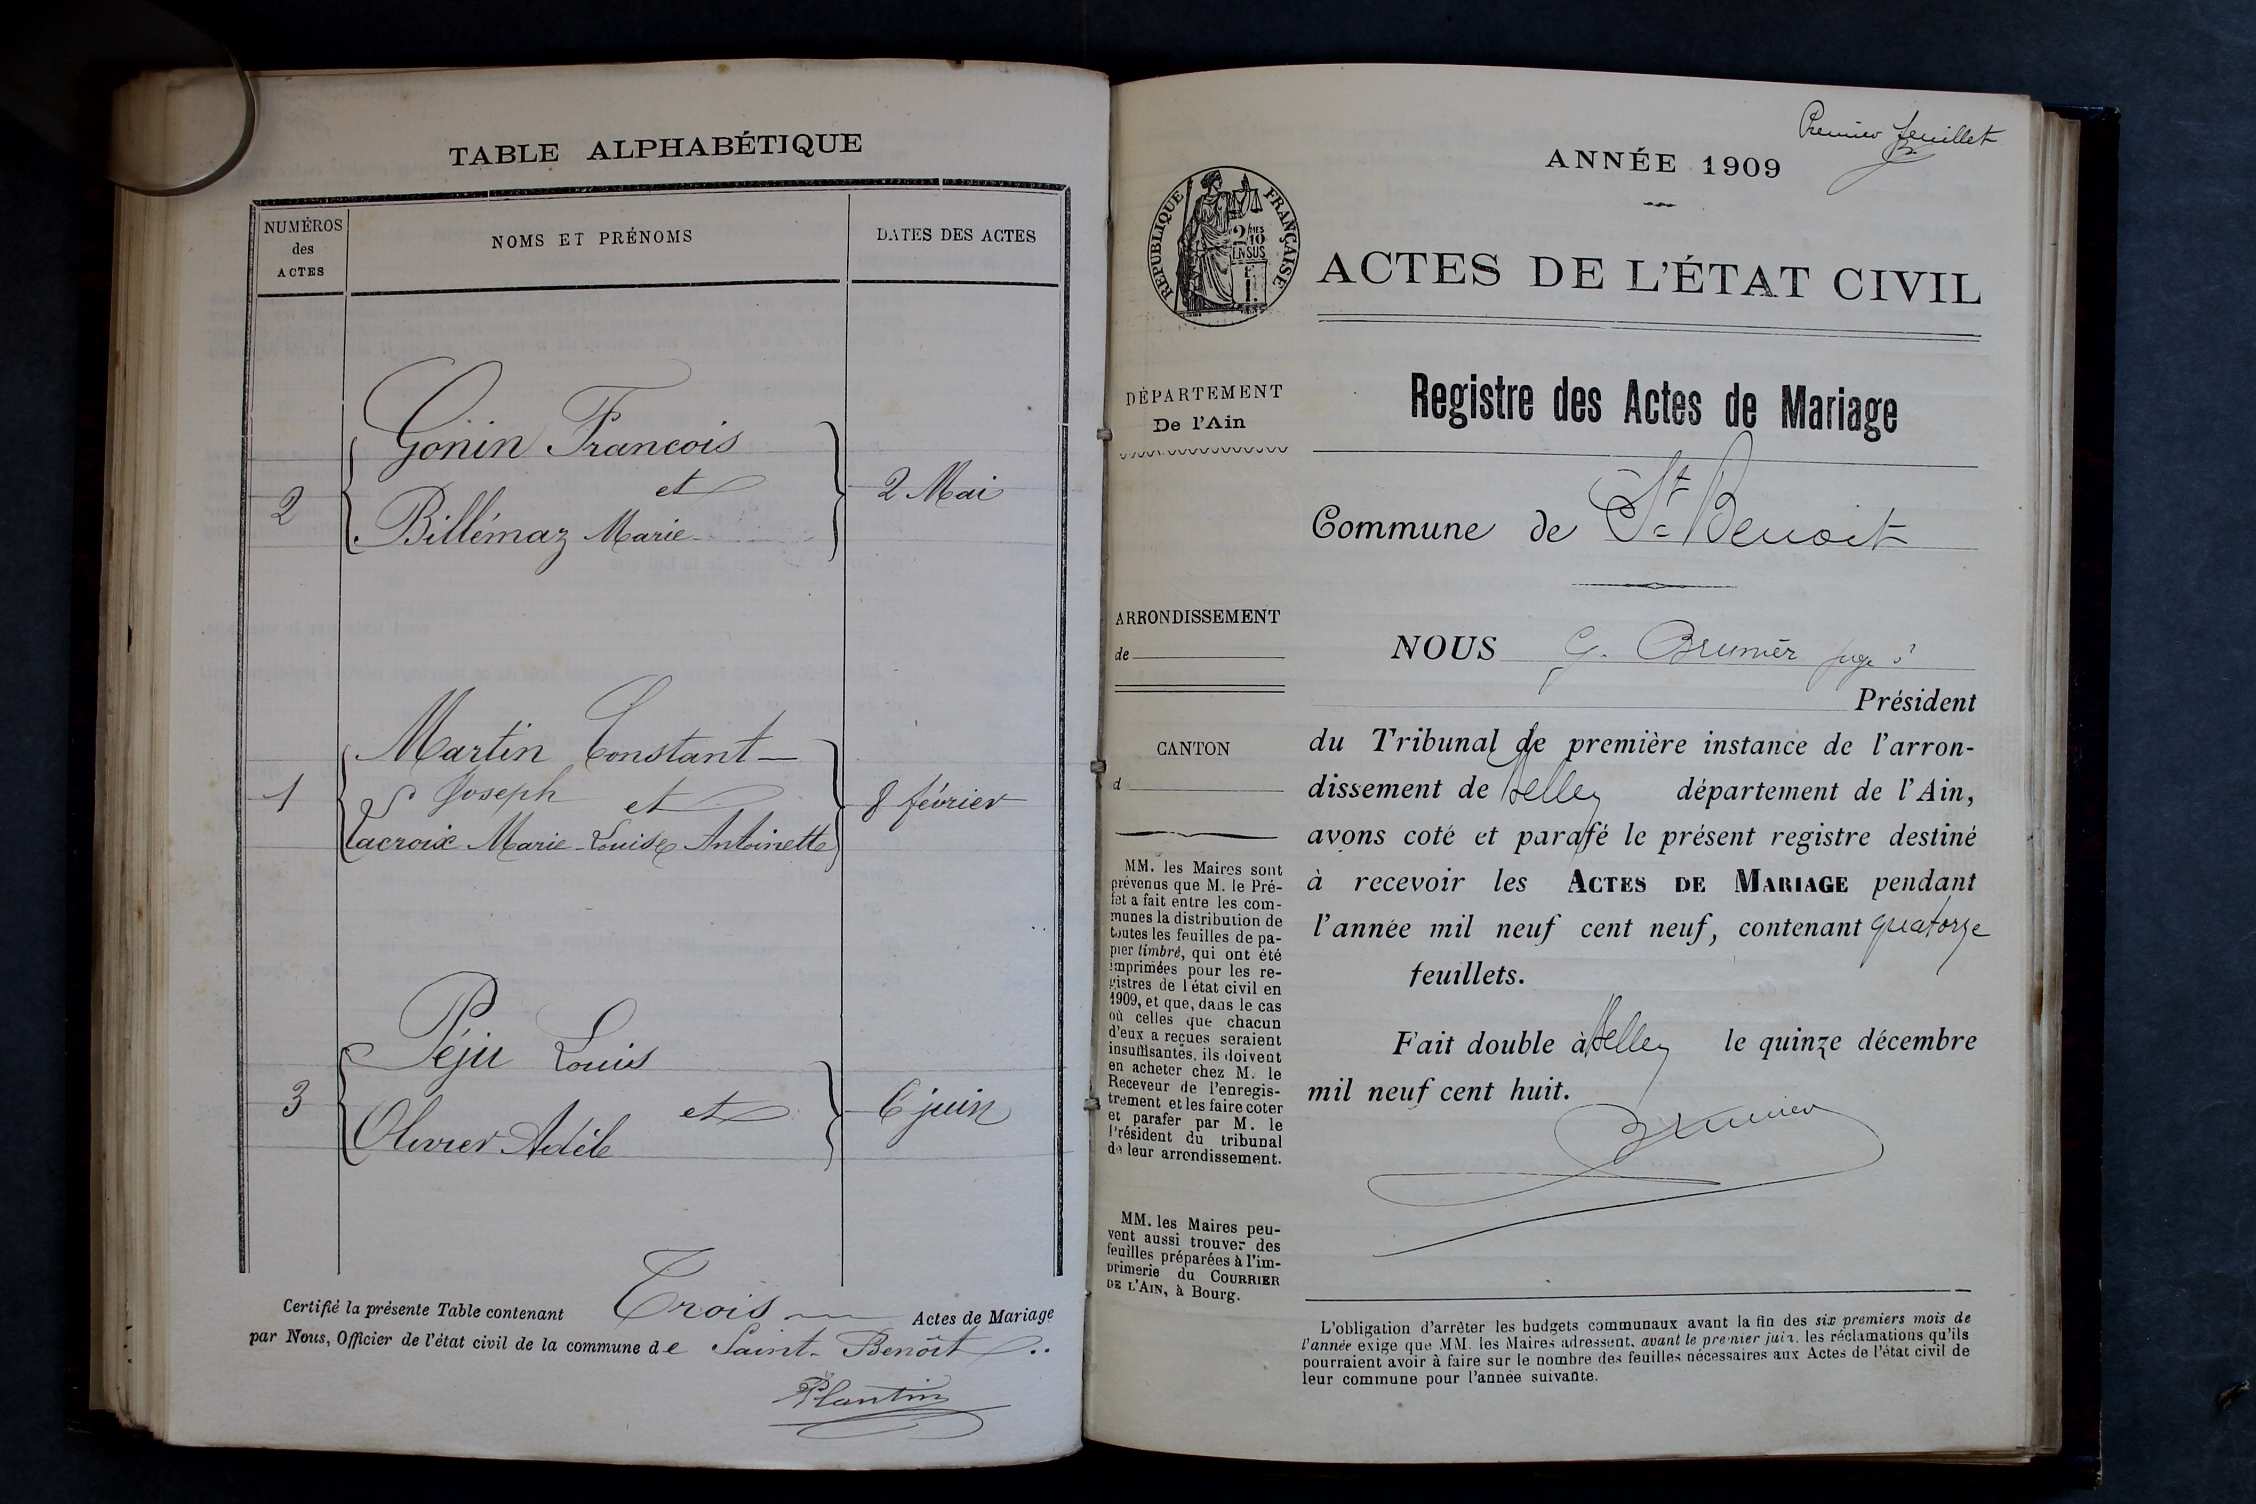 TABLE ALPHABÉTIQUE
NUMÉROS
des
ACTES
NOMS ET PRÉNOMS
DATES DES ACTES
Gonin Francois
et
2
2 Mai
Billémaz Marie
Martin Constant
Joseph et
1
8 février
Lacroix Marie-Louise Antoinette
Péju Louis
et
3
6 juin
Olivier Adèle
Certifié la présente Table contenant Trois Actes de Mariage
par Nous, Officier de l'état civil de la commune de Saint-Benoît
Plantin
Premier feuillet
ANNÉE 1909
RÉPUBLIQUE FRANÇAISE
2/10
EN SUS
ACTES DE L'ÉTAT CIVIL
DÉPARTEMENT
De l'Ain
ARRONDISSEMENT
de
CANTON
d
MM. les Maires sont
prévenus que M. le Pré-
fet a fait entre les com-
munes la distribution de
toutes les feuilles de pa-
pier timbré, qui ont été
imprimées pour les re-
gistres de l'état civil en
1909, et que, dans le cas
où celles que chacun
d'eux a reçues seraient
insuffisantes, ils doivent
en acheter chez M. le
Receveur de l'enregis-
trement et les faire coter
et parafer par M. le
Président du tribunal
de leur arrondissement.
MM. les Maires peu-
vent aussi trouver des
feuilles préparées à l'im-
primerie du COURRIER
DE L'AIN, à Bourg.
Registre des Actes de Mariage
Commune de St Benoit
NOUS G. Brunier juge
Président
du Tribunal de première instance de l'arron-
dissement de Belley département de l'Ain,
avons coté et parafé le présent registre destiné
à recevoir les ACTES DE MARIAGE pendant
l'année mil neuf cent neuf, contenant quatorze
feuillets.
Fait double à Belley le quinze décembre
mil neuf cent huit.
Brunier
L'obligation d'arrêter les budgets communaux avant la fin des six premiers mois de
l'année exige que MM. les Maires adressent, avant le premier juin, les réclamations qu'ils
pourraient avoir à faire sur le nombre des feuilles nécessaires aux Actes de l'état civil de
leur commune pour l'année suivante.